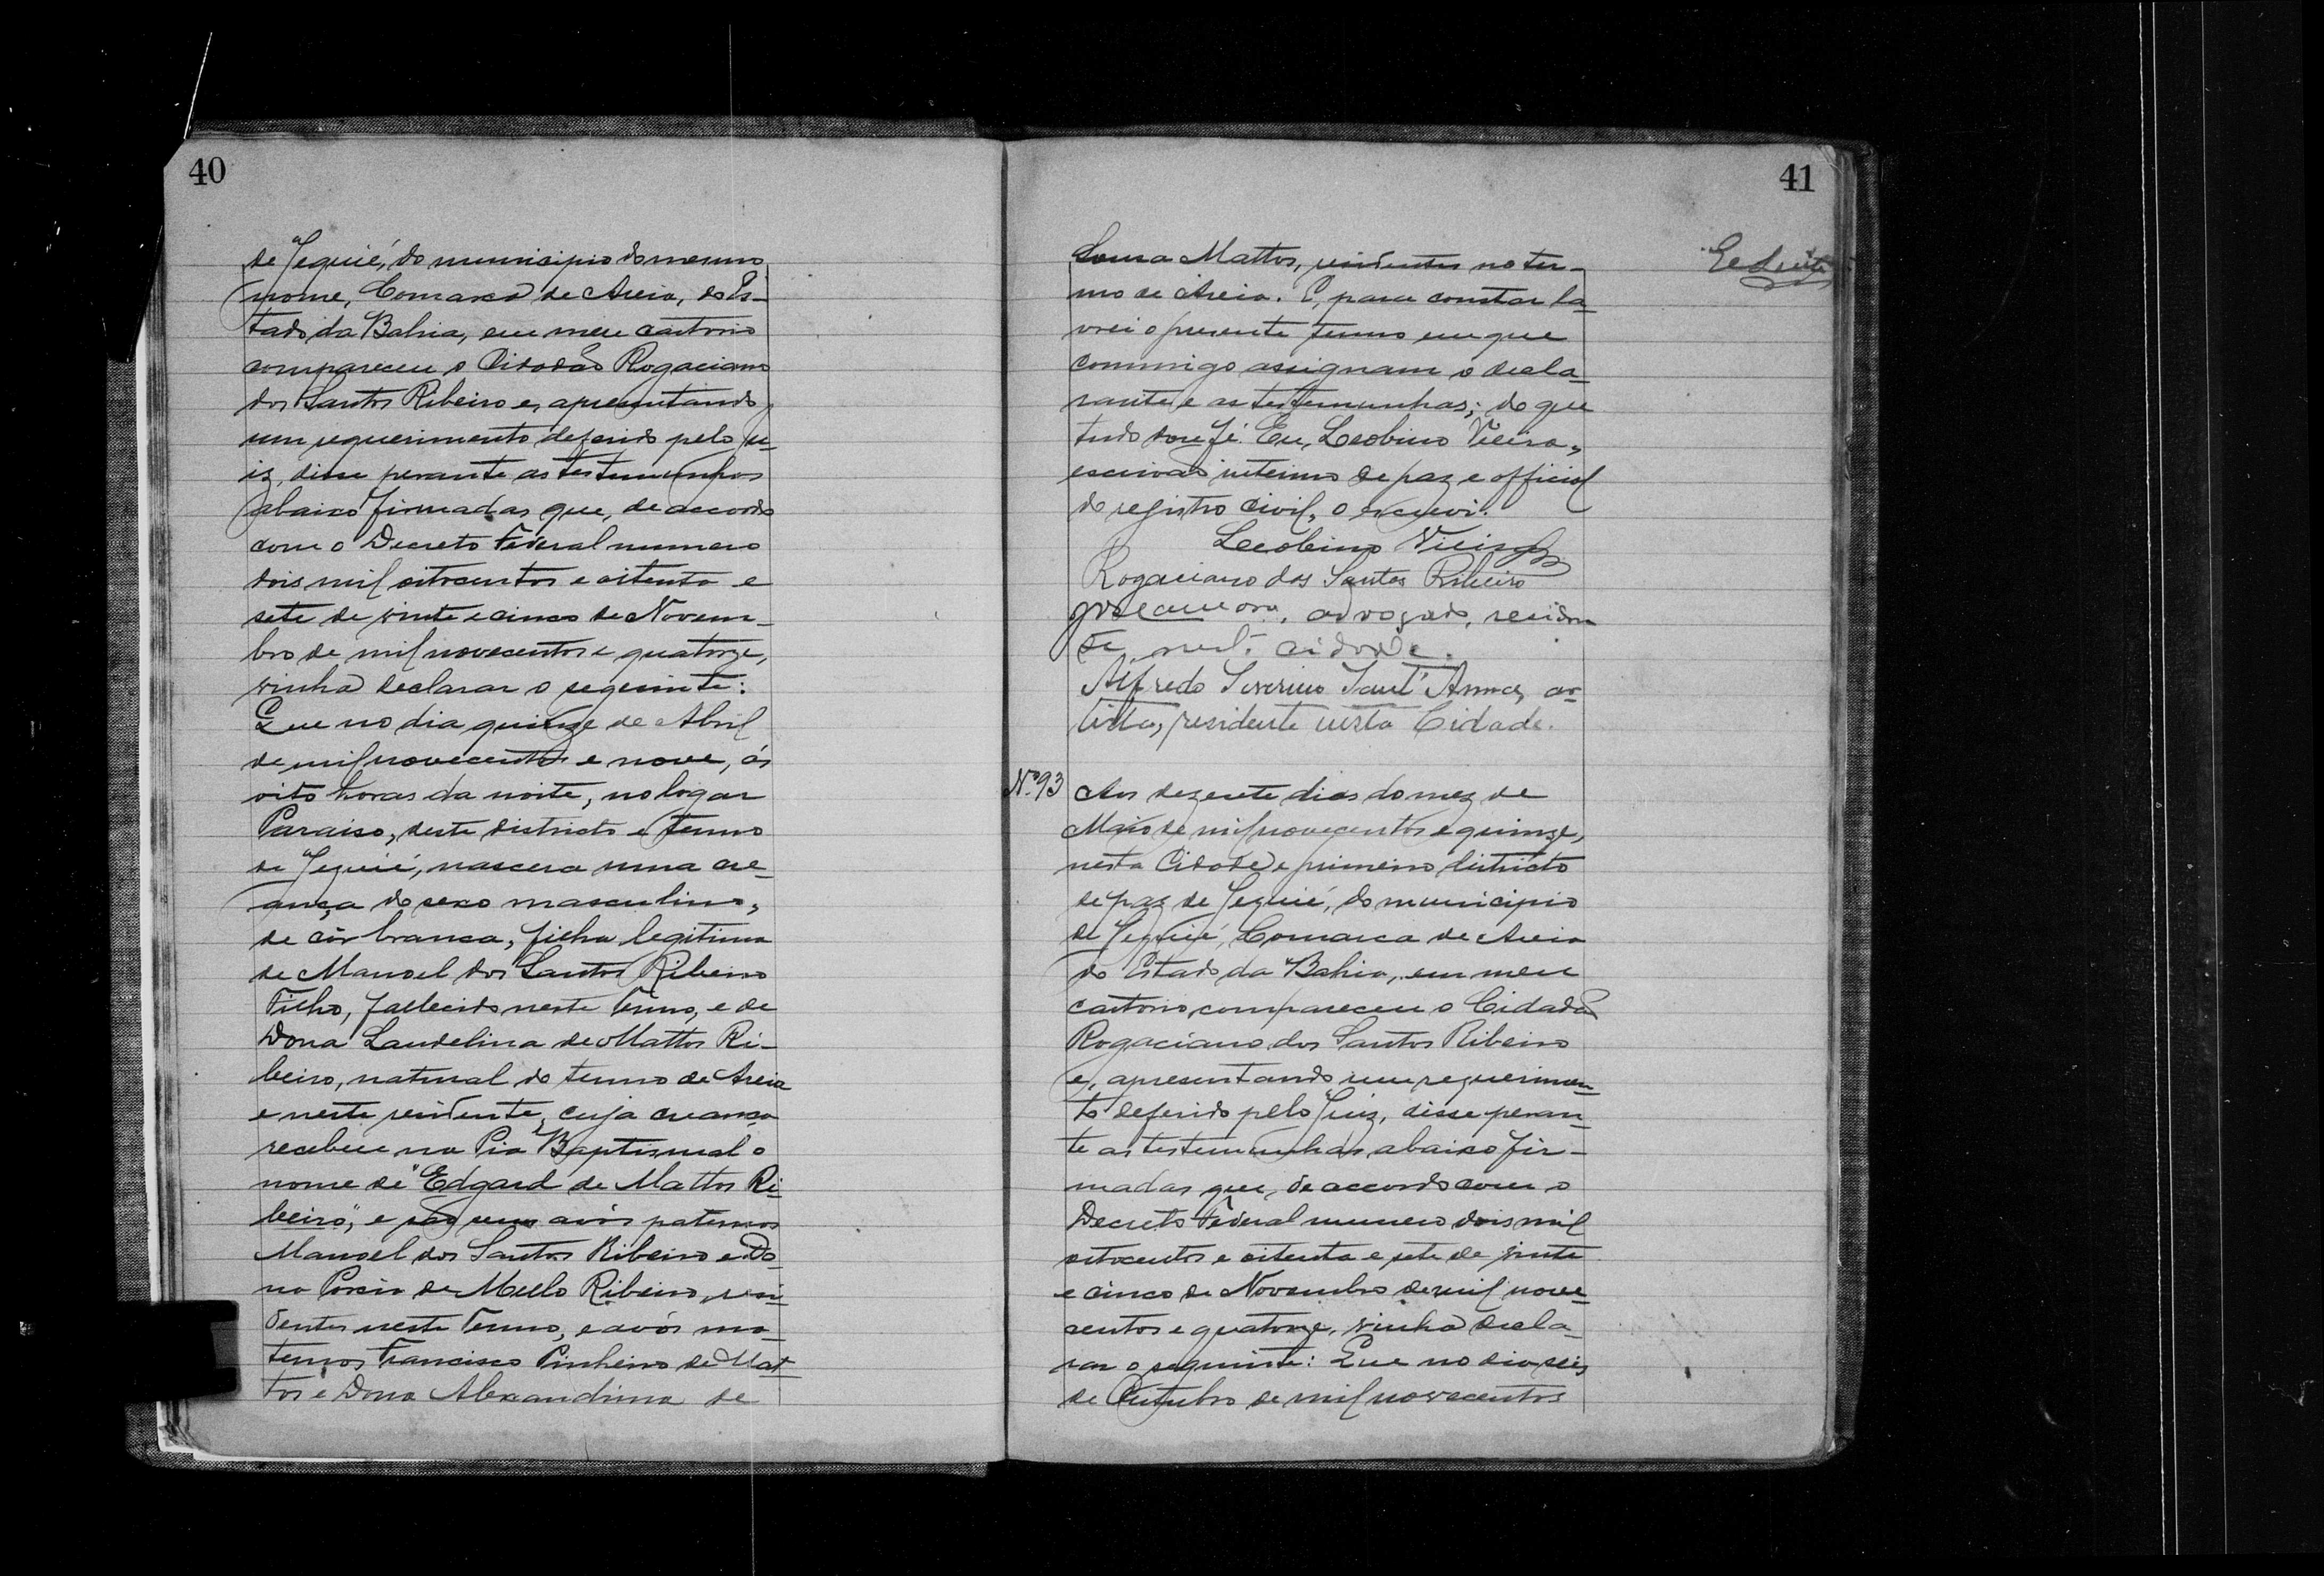 40
de Jequié, do municipio do mesmo
nome, Comarca de Areia, do Es-
tado da Bahia, em meu cartorio
compareceu o Cidadão Rogaciano
dos Santos Ribeiro e, apresentando
um requerimento deferido pelo Ju-
iz, disse perante as testemunhas
abaixo firmadas que, de accordo
com o Decreto Federal numero
dois mil oitocentos e oitenta e
sete de vinte e cinco de Novem-
bro de mil novecentos e quatorze,
vinha declarar o seguinte:
Que no dia quinze de Abril
de mil novecentos e nove, ás
oito horas da noite, no logar
Paraiso, deste districto e termo
de Jequié, nascera uma cre-
ança do sexo masculino,
de côr branca, filha legitima
de Manoel dos Santos Ribeiro
Filho, fallecido neste termo, e de
Dona Laudelina de Mattos Ri-
beiro, natural do termo de Areia
e neste residente, cuja creança
recebeu na Pia Baptismal o
nome de "Edgard de Mattos Ri-
beiro", e são seus avós paternos
Manoel dos Santos Ribeiro e Do-
na Porcia de Mello Ribeiro, resi-
dentes neste Termo, e avós ma-
ternos Francisco Pinheiro de Mat-
tos e Dona Alexandrina de
41
Souza Mattos, residentes no ter-
mo de Areia. E, para constar la-
vrei o presente termo em que
commigo assignam o decla-
rante e as testemunhas; do que
tudo dou fé. Eu, Leobino Vieira,
escrivão interino de paz e official
do registro civil, o escrevi.
Leobino Vieira
Rogaciano dos Santos Ribeiro
advogado, residen
te nesta cidade.
Alfredo Severino Sant'Anna, ar-
tista, residente nesta Cidade.
Nº 93
Aos dezesete dias do mez de
Maio de mil novecentos e quinze,
nesta Cidade e primeiro districto
de paz de Jequié, do municipio
de Jequié, Comarca de Areia
do Estado da Bahia, em meu
cartorio compareceu o Cidadão
Rogaciano dos Santos Ribeiro
e, apresentando um requerimen-
to deferido pelo Juiz, disse peran-
te as testemunhas abaixo fir-
madas que, de accordo com o
Decreto Federal numero dois mil
oitocentos e oitenta e sete de vinte
e cinco de Novembro de mil nove-
centos e quatorze, vinha decla-
rar o seguinte: Que no dia seis
de Outubro de mil novecentos